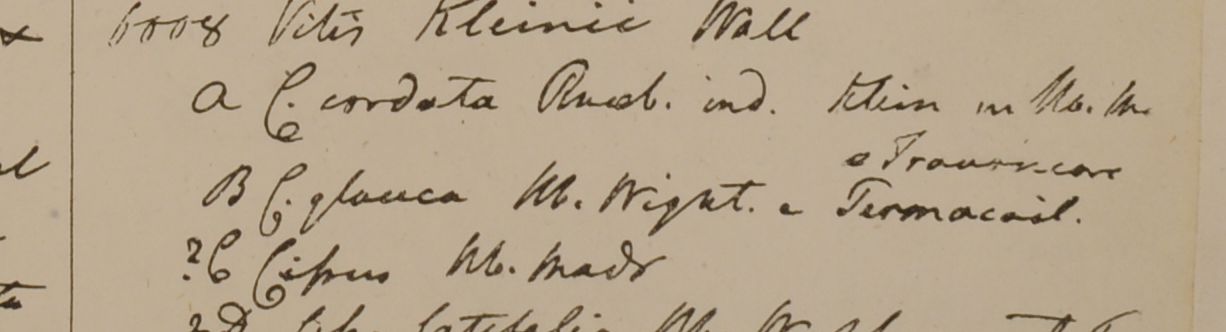 6008 Vitis Kleinii Wall
A C. cordata Roxb. ind. Klein in Hb. M.
e Travancore
B C. glauca Hb. Wight. e
?C Cissus Hb. Madr
?D latifolia Hb.